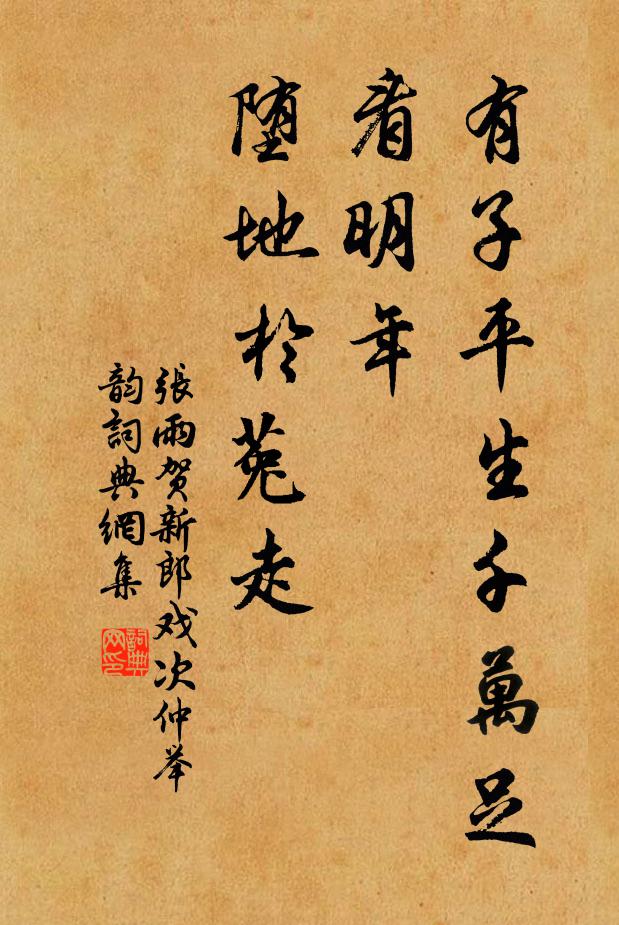 有子平生千萬足
看明年
堕地於菟走
張雨贺新郎戏次仲举
韵詞典網集
詞典
网印